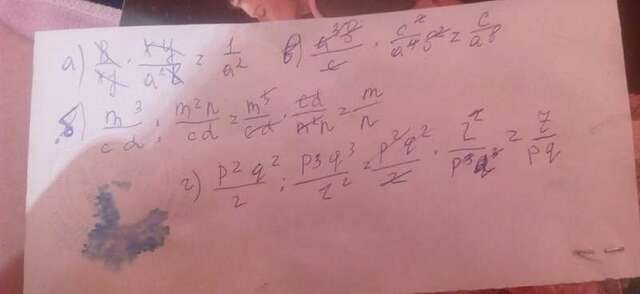 а) в/xy · xy/a²в = 1/a² в) a³в/c · c²/a⁴в² = c/aв
б) m³/cd : m²n/cd = m³/cd · cd/m²n = m/n
г) p²q²/z : p³q³/z² = p²q²/z · z²/p³q³ = z/pq